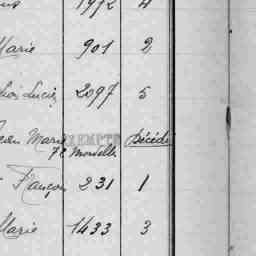 1972 4
Marie 901 2
Lucien 2097 5
Jean Marie EXEMPTÉ Décédé
7e Mordelles
François 231 1
Marie 1433 3